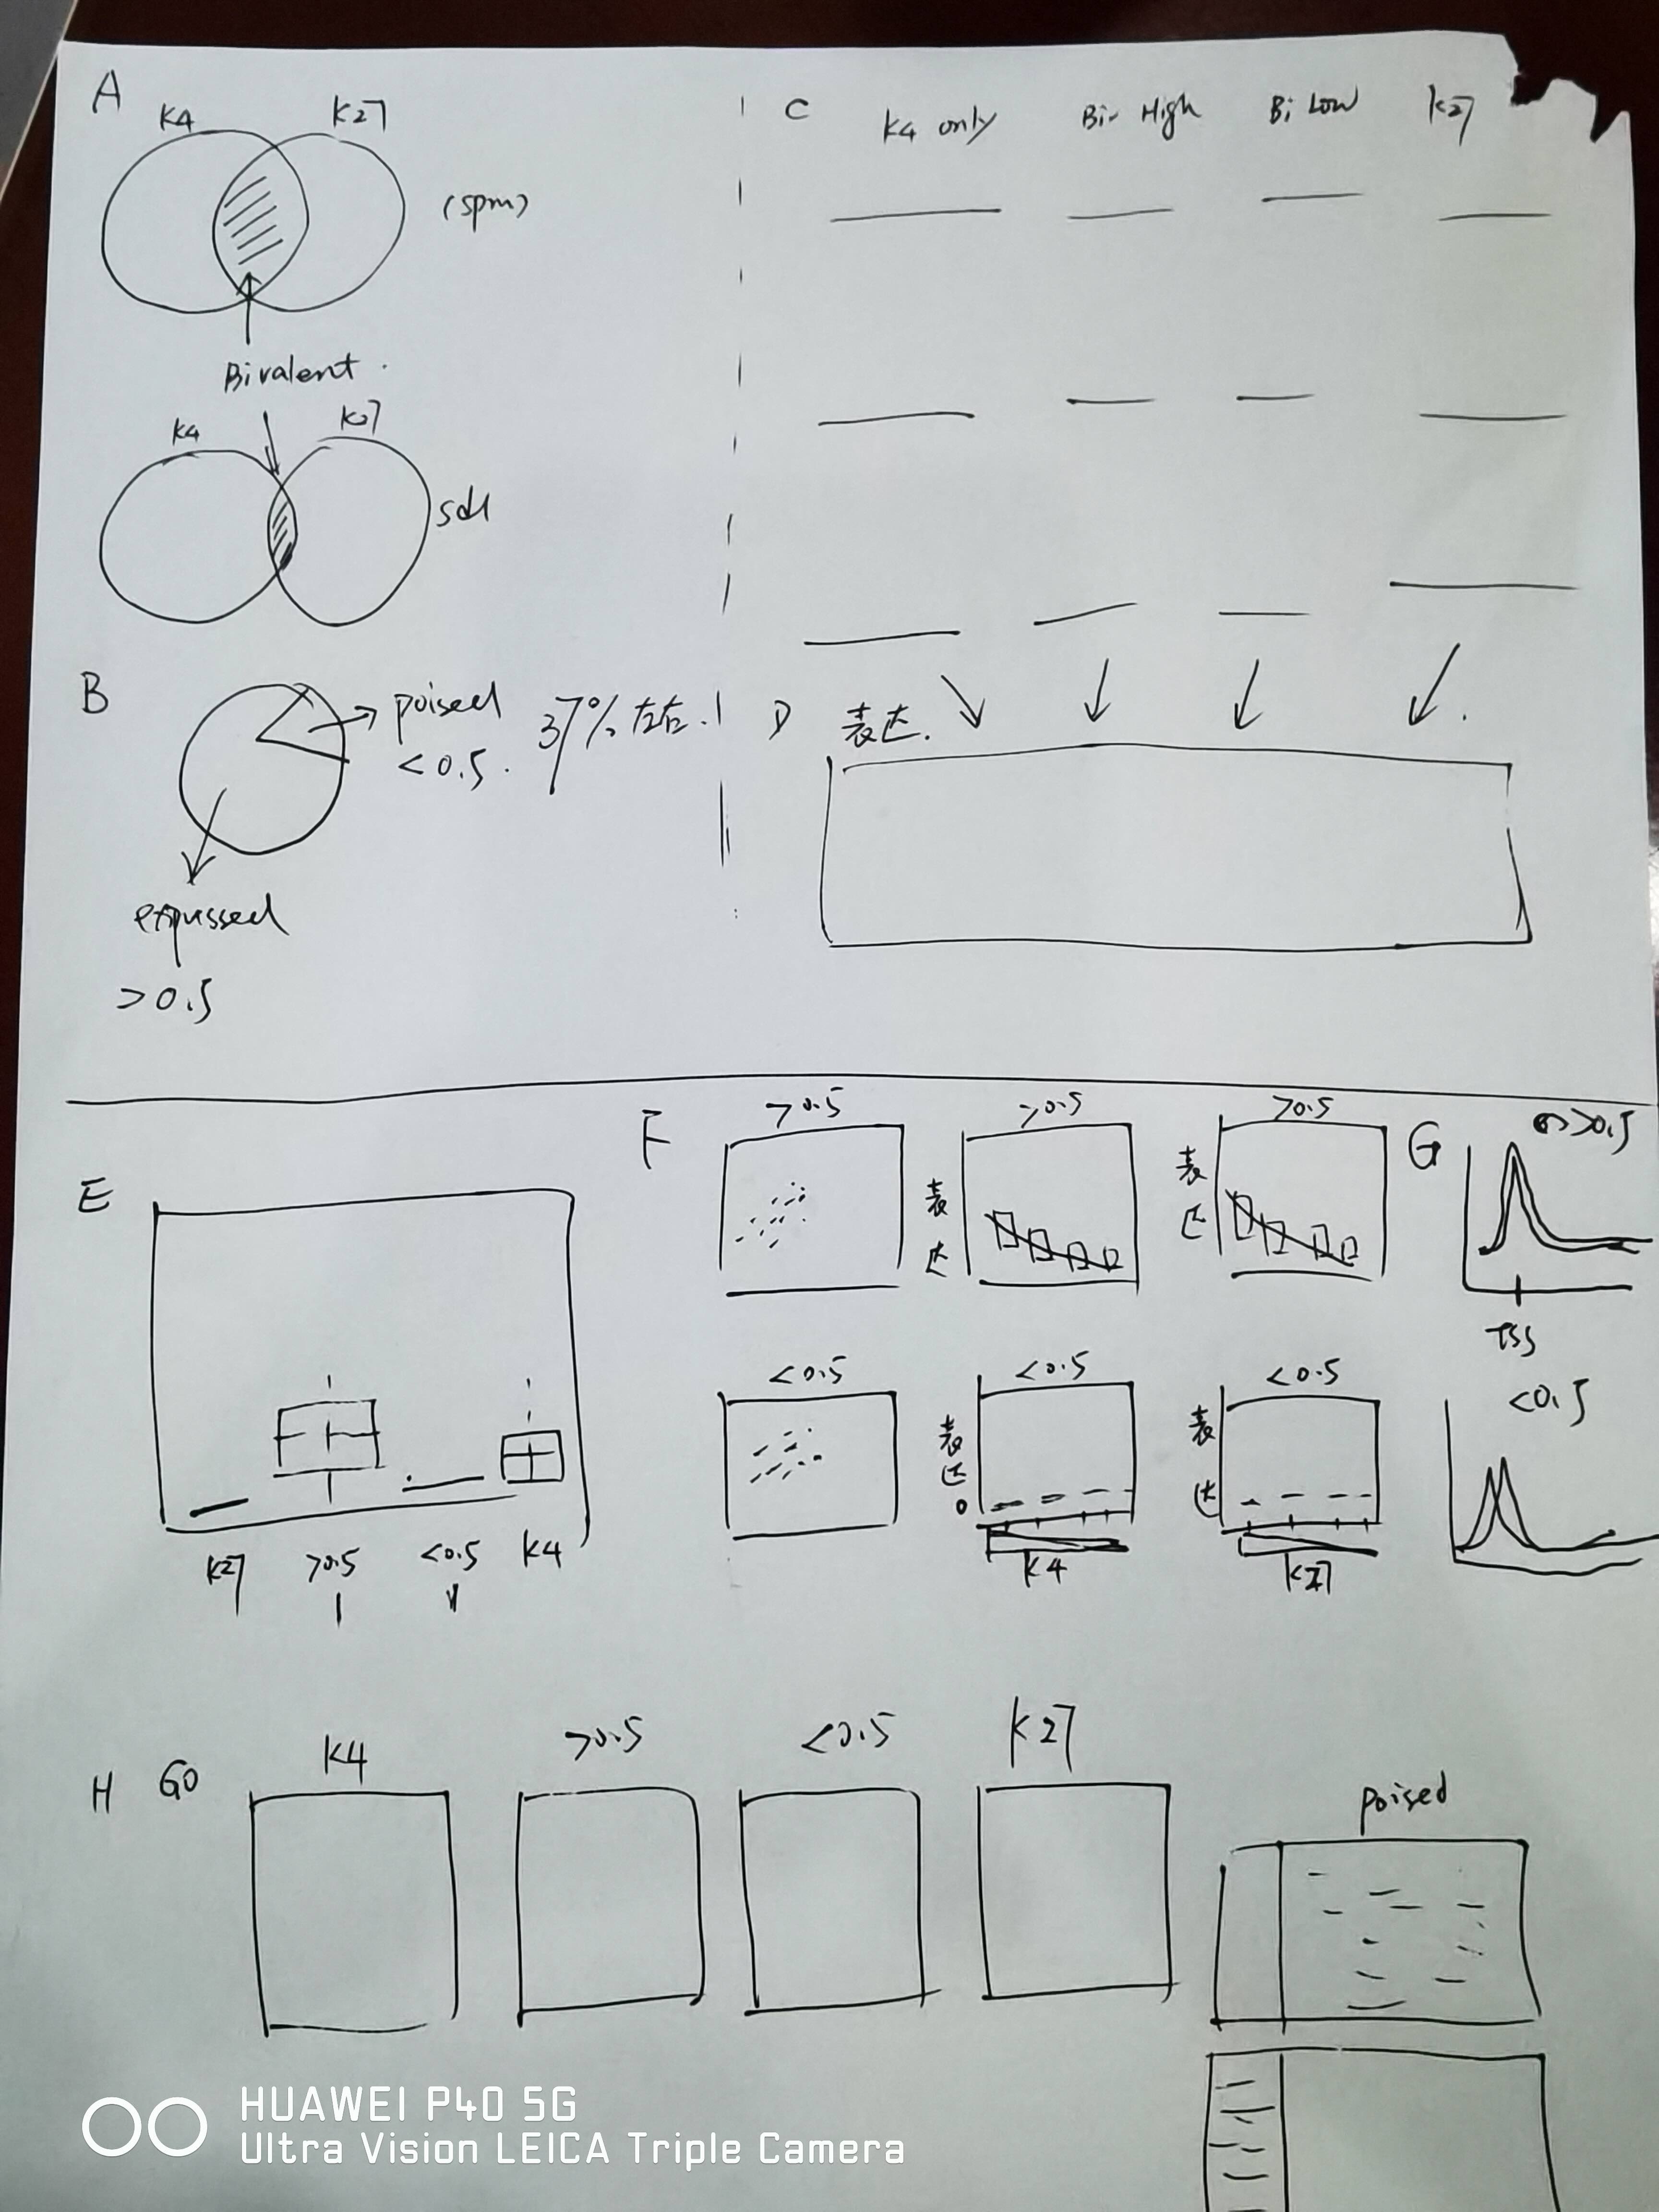 A
K4 K27
(spm)
Bivalent.
K4 K27
sdl
B
poised
<0.5. 37%左右.
expressed
>0.5
C
K4 only Biv High Bi Low K27
D 表达.
E
K27 >0.5 <0.5 K4
F
>0.5 >0.5 >0.5
表达 表达
<0.5 <0.5 <0.5
表达 表达
0
K4 K27
G
>0.5
TSS
<0.5
H GO
K4 >0.5 <0.5 K27
poised
HUAWEI P40 5G
Ultra Vision LEICA Triple Camera